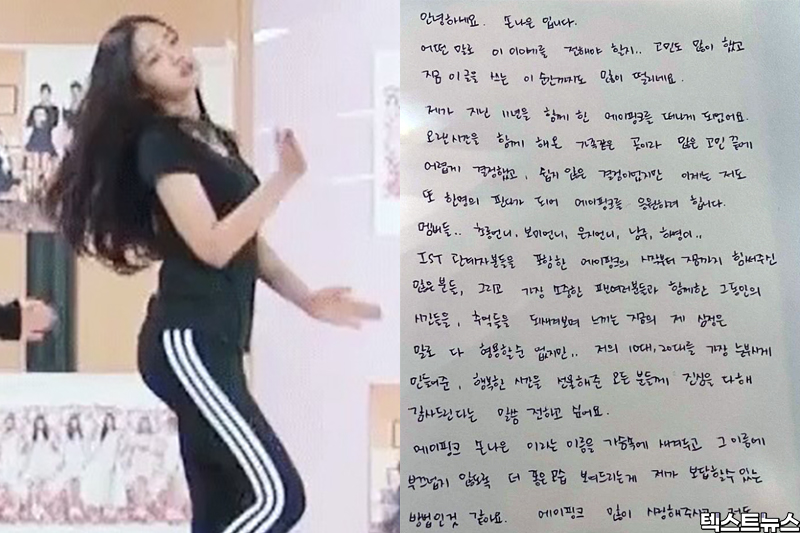 안녕하세요. 손나은 입니다.
어떤 말로 이 이야기를 전해야 할지.. 고민도 많이 했고
지금 이 글을 쓰는 이 순간까지도 많이 떨리네요.
제가 지난 11년을 함께 한 에이핑크를 떠나게 되었어요.
오랜시간을 함께 해온 가족같은 곳이라 많은 고민 끝에
어렵게 결정했고, 쉽지 않은 결정이었지만 이제는 저도
또 한명의 판다가 되어 에이핑크를 응원하려 합니다.
멤버들.. 초롱언니, 보미언니, 은지언니, 남주, 하영이..
IST 관계자분들을 포함한 에이핑크의 시작부터 지금까지 함께해주신
많은 분들, 그리고 가장 소중한 팬여러분들과 함께한 그동안의
시간들을, 추억들을 되새겨보며 느끼는 지금의 제 심정은
말로 다 형용할순 없지만.. 저의 10대, 20대를 가장 눈부시게
만들어준, 행복한 시간을 선물해준 모든 분들께 진심을 다해
감사드린다는 말씀 전하고 싶어요.
에이핑크 손나은 이라는 이름을 가슴속에 새겨두고 그 이름에
부끄럽지 않도록 더 좋은모습 보여드리는게 제가 보답할수 있는
방법인것 같아요. 에이핑크 많이 사랑해주시고 저도
텍스트뉴스